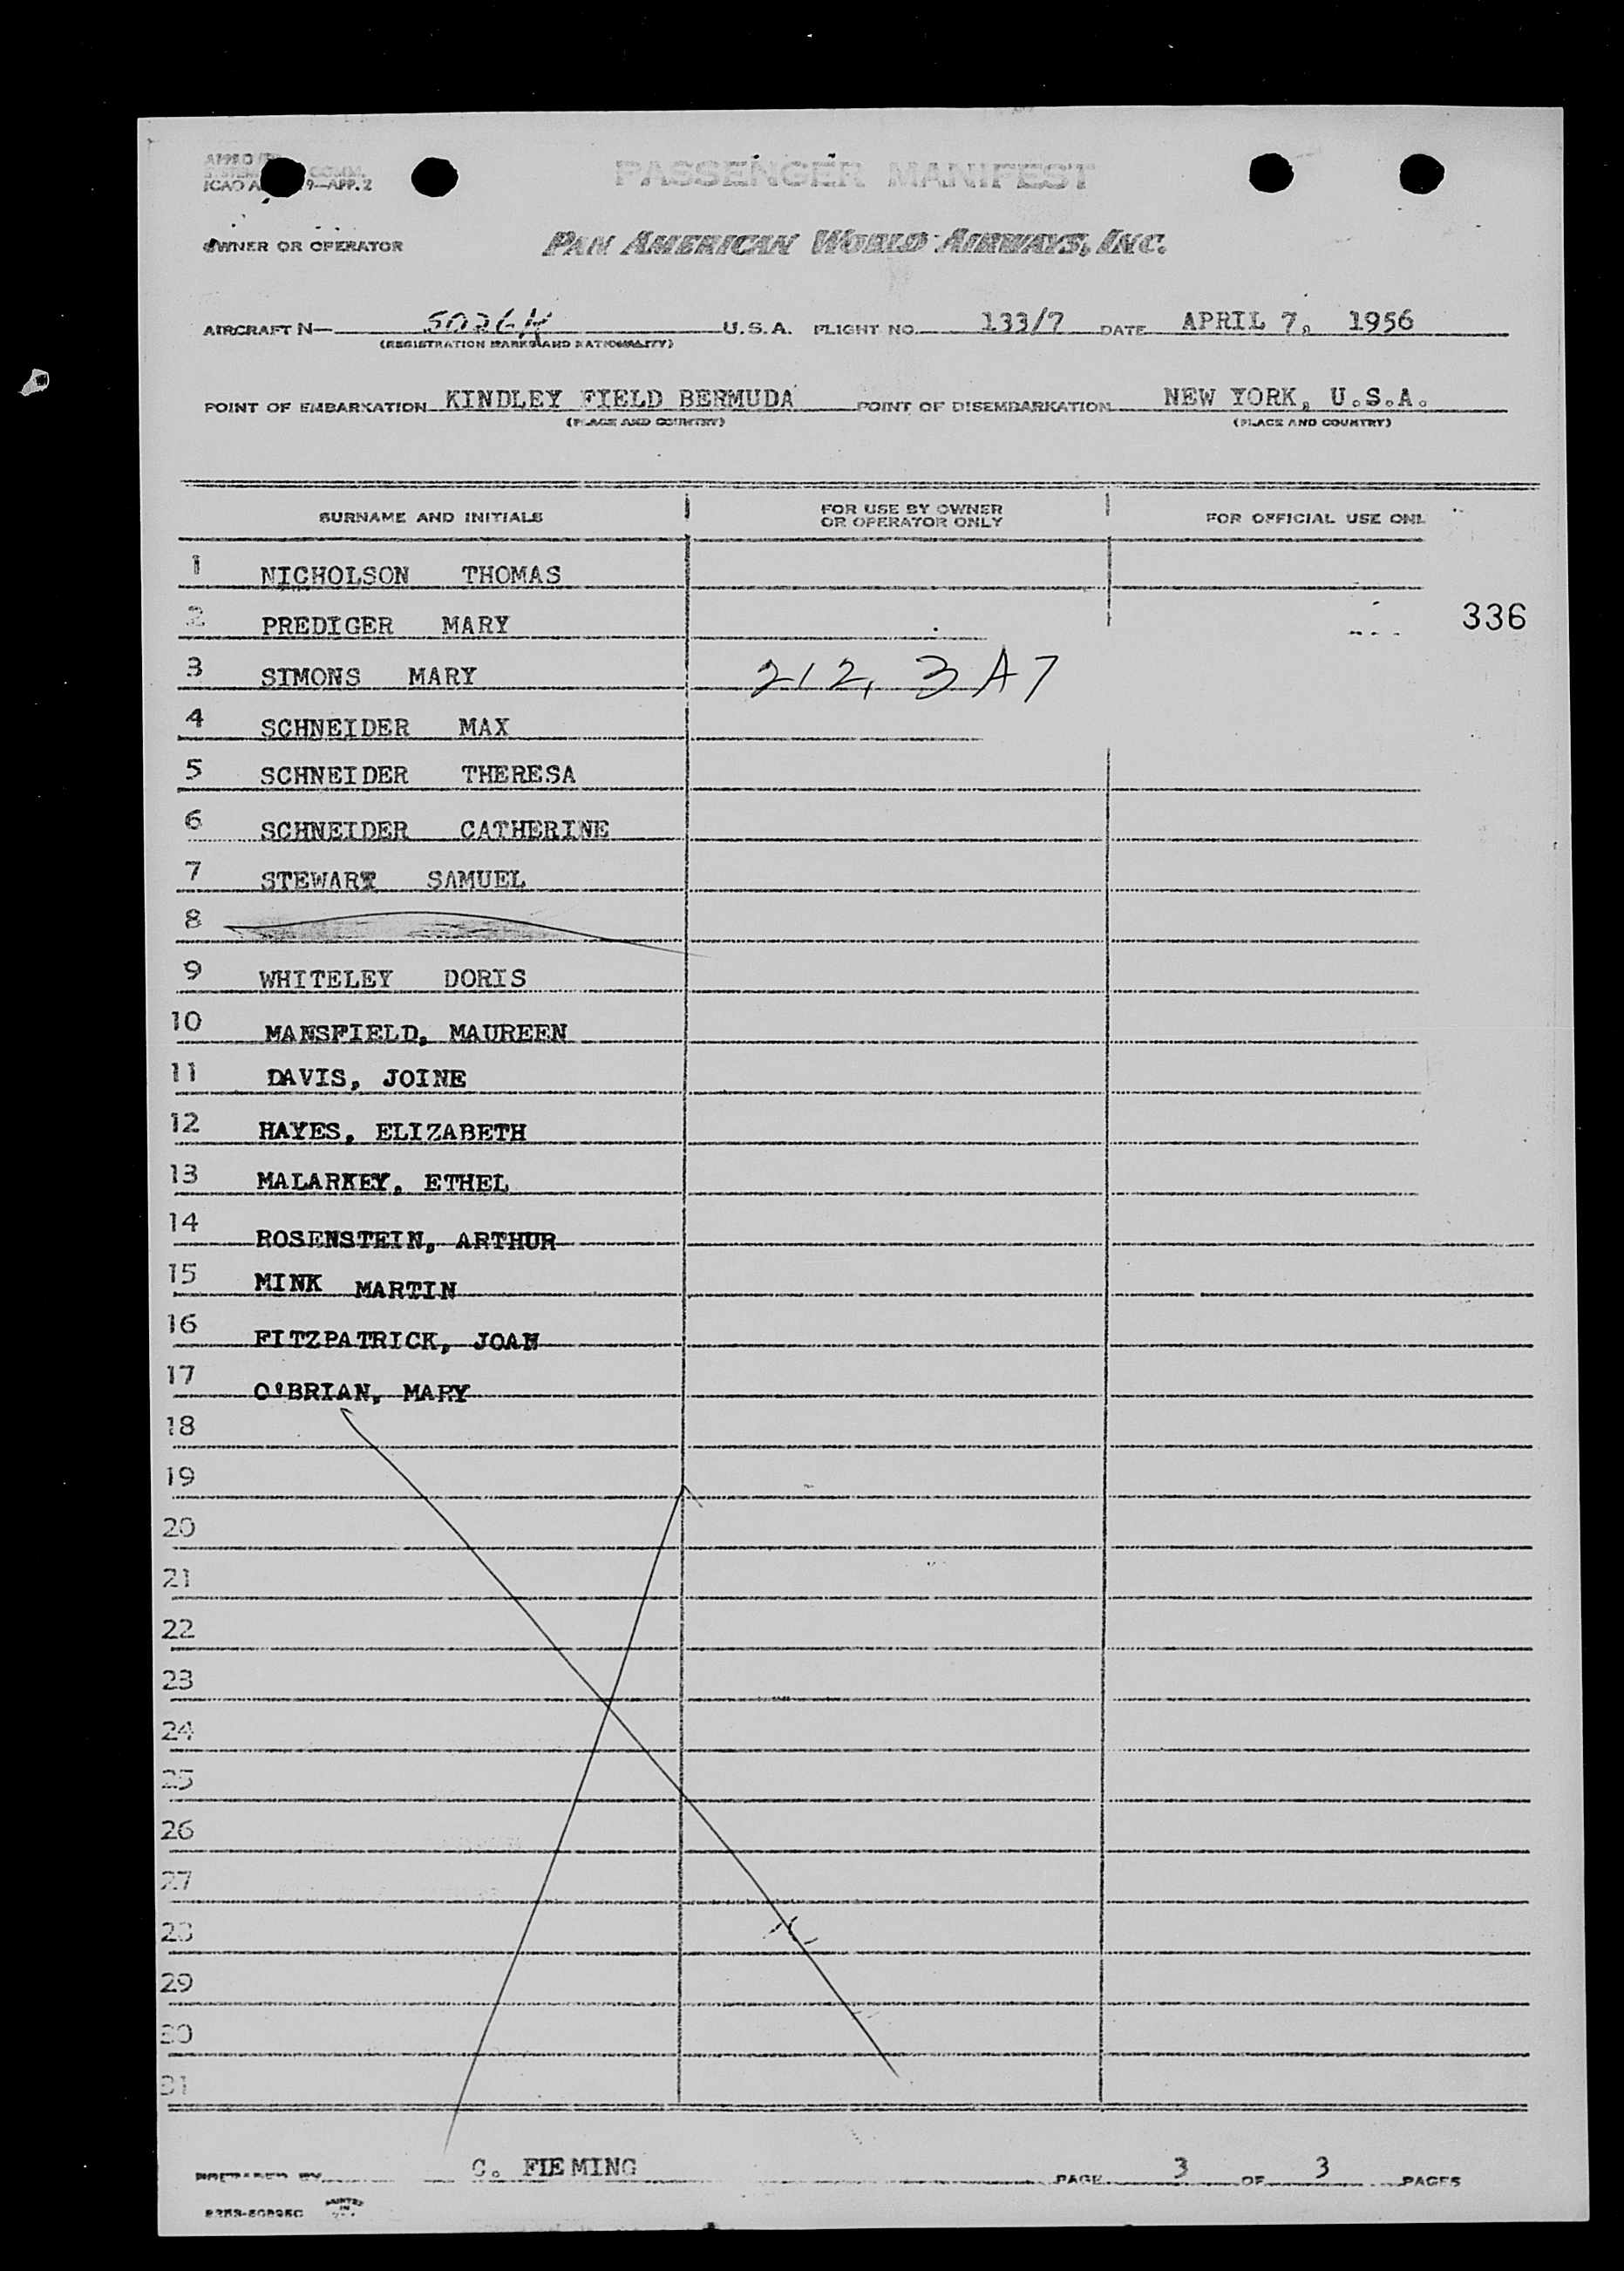 PASSENGER MANIFEST
ICAO A 9—APP. 2
OWNER OR OPERATOR PAN AMERICAN WORLD AIRWAYS, INC.
AIRCRAFT N— 5026K U. S. A. FLIGHT NO. 133/7 DATE APRIL 7, 1956
(REGISTRATION MARKS AND NATIONALITY)
POINT OF EMBARKATION KINDLEY FIELD BERMUDA POINT OF DISEMBARKATION NEW YORK, U.S.A.
(PLACE AND COUNTRY) (PLACE AND COUNTRY)
SURNAME AND INITIALS FOR USE BY OWNER OR OPERATOR ONLY FOR OFFICIAL USE ONL
1 NICHOLSON THOMAS
2 PREDIGER MARY 336
3 SIMONS MARY 212, 3 A7
4 SCHNEIDER MAX
5 SCHNEIDER THERESA
6 SCHNEIDER CATHERINE
7 STEWART SAMUEL
8
9 WHITELEY DORIS
10 MANSFIELD, MAUREEN
11 DAVIS, JOINE
12 HAYES, ELIZABETH
13 MALARKEY, ETHEL
14 ROSENSTEIN, ARTHUR
15 MINK MARTIN
16 FITZPATRICK, JOAN
17 O'BRIAN, MARY
18
19
20
21
22
23
24
25
26
27
28
29
30
31
PREPARED BY C. FIEMING PAGE 3 OF 3 PAGES
PRINTED IN